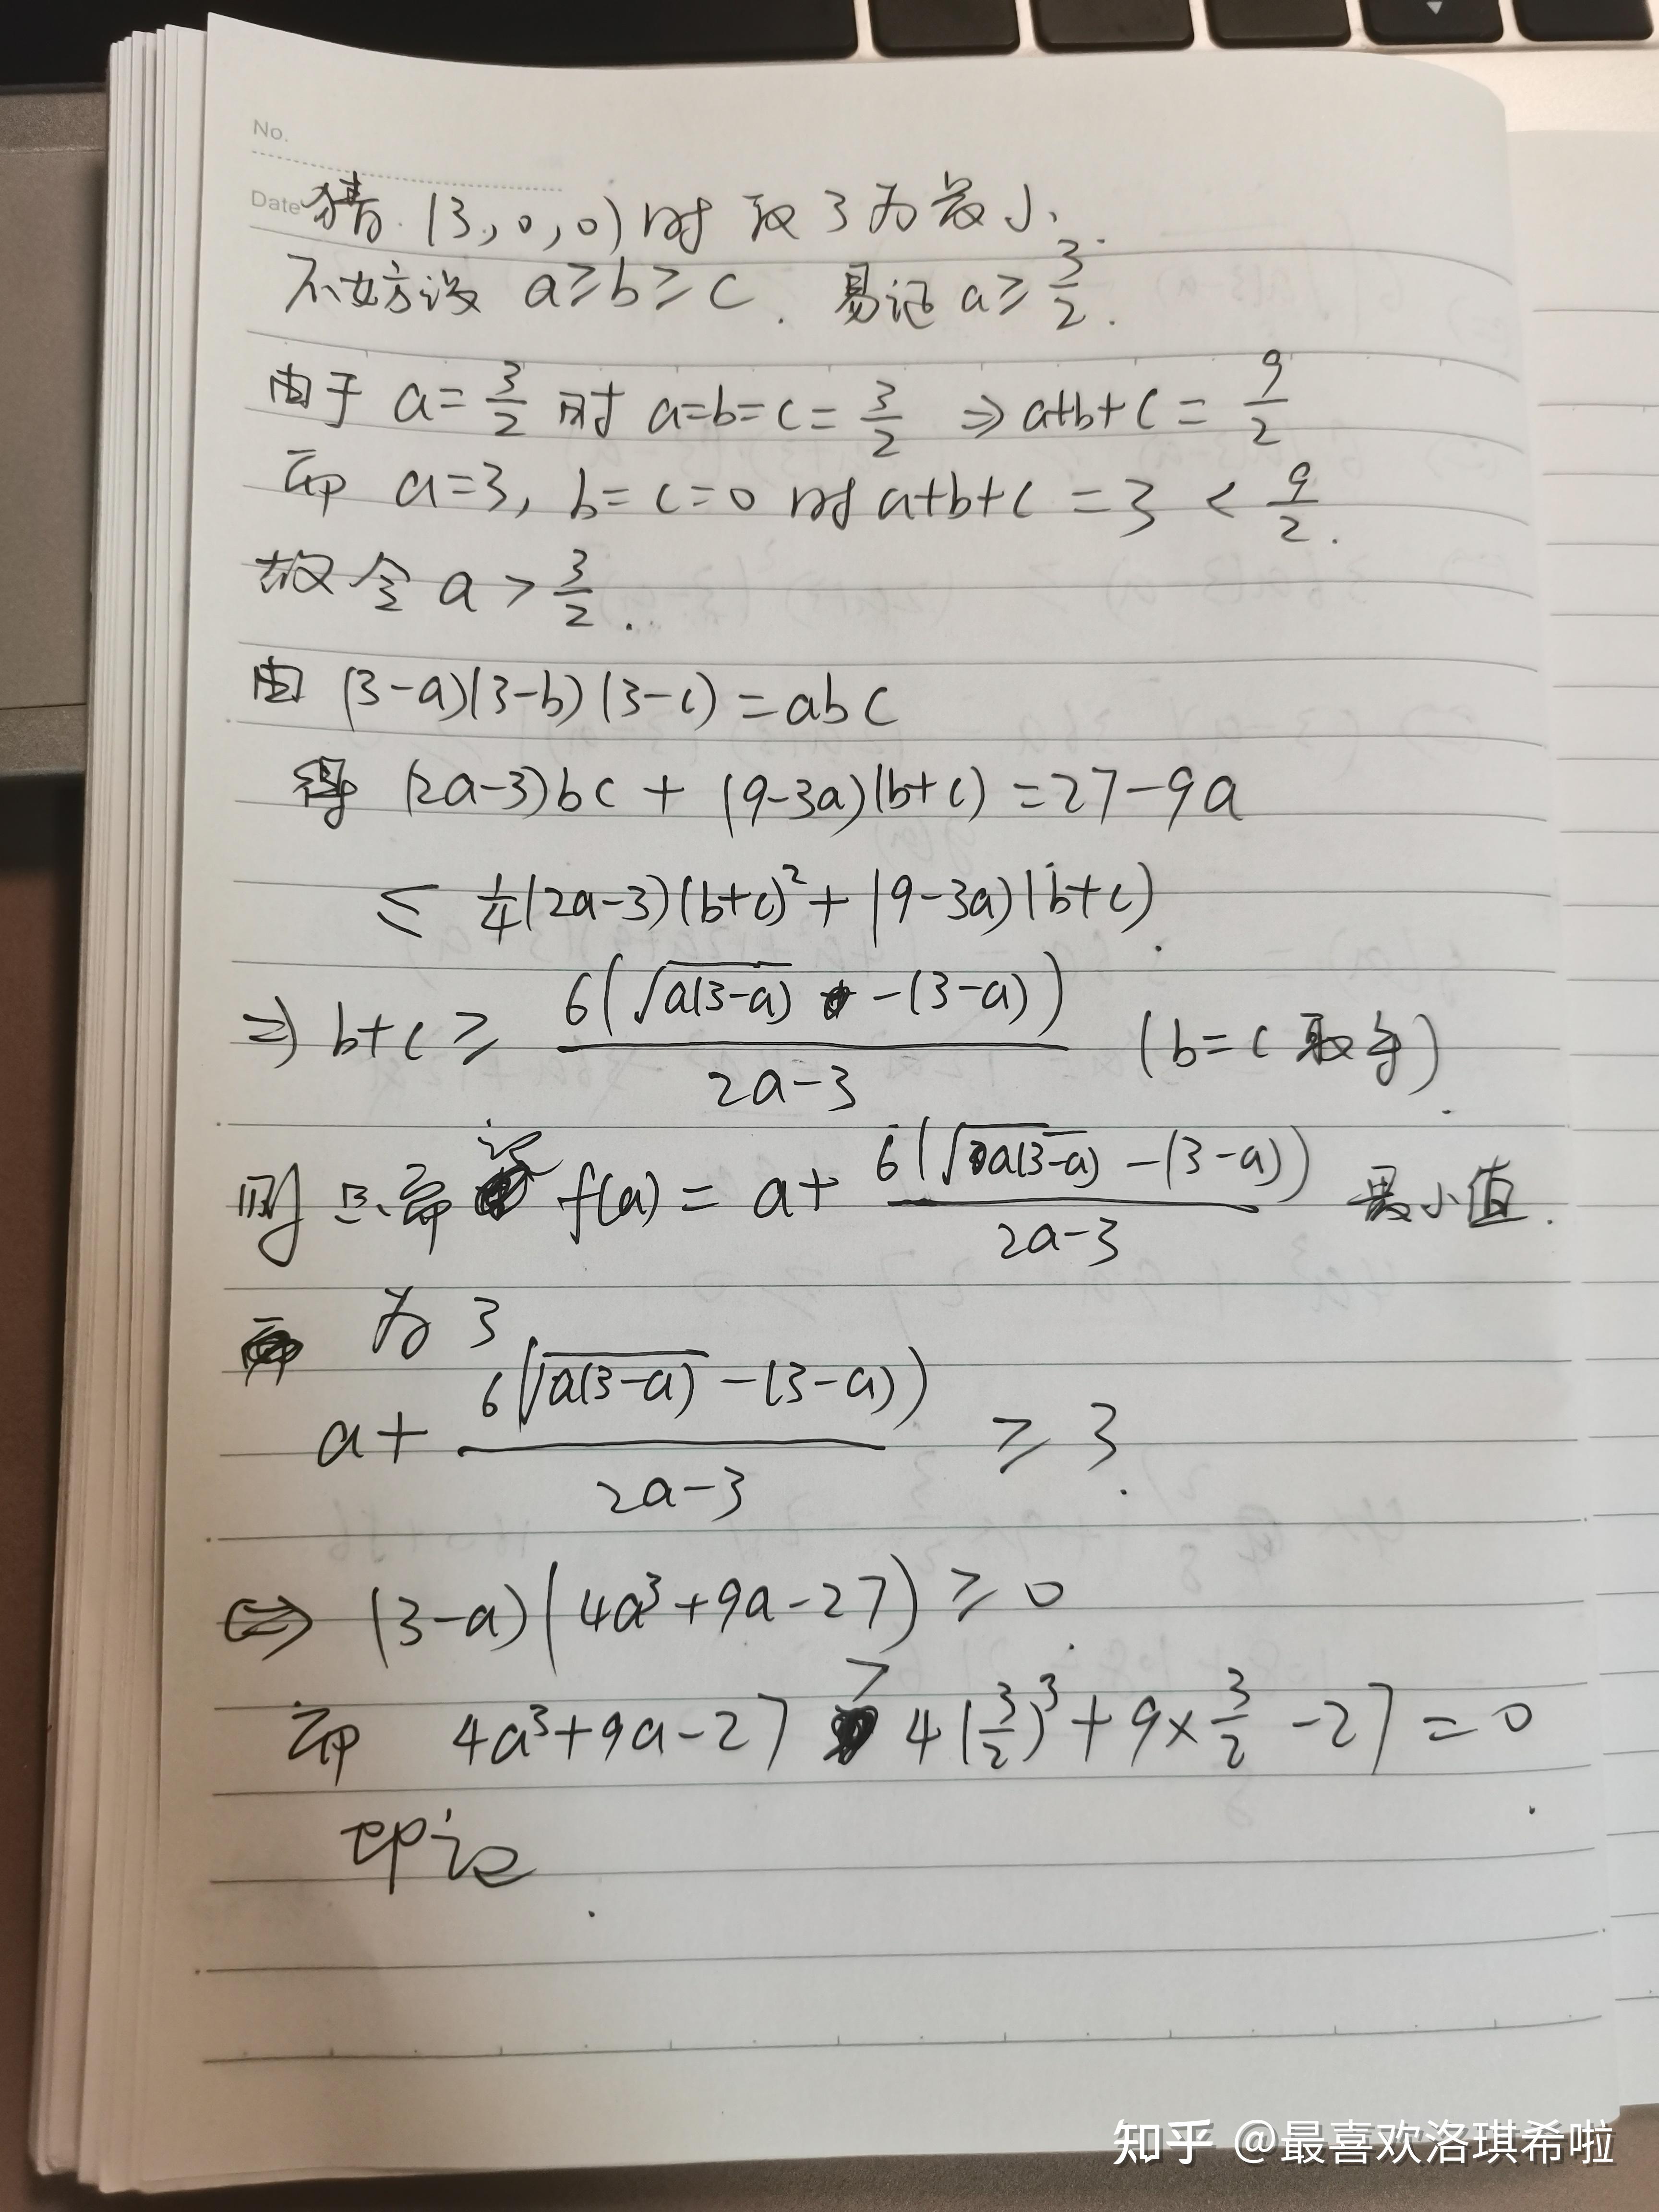 No.
Date
猜 (3,0,0)时 取3为最小.
不妨设 a≥b≥c. 易证 a≥3/2.
由于 a=3/2 时 a=b=c=3/2 ⇒a+b+c=9/2
而 a=3, b=c=0 时 a+b+c=3<9/2.
故令 a>3/2.
由 (3-a)(3-b)(3-c)=abc
得 (2a-3)bc+(9-3a)(b+c)=27-9a
≤ 1/4(2a-3)(b+c)²+(9-3a)(b+c).
⇒ b+c≥ 6(√a(3-a) -(3-a))/2a-3 (b=c取等).
则只需证 f(a)=a+ 6(√a(3-a) -(3-a))/2a-3 最小值.
为3
a+ 6(√a(3-a) -(3-a))/2a-3 ≥3.
⇔ (3-a)(4a³+9a-27)≥0.
而 4a³+9a-27 > 4(3/2)³+9×3/2-27=0.
即证.
知乎 @最喜欢洛琪希啦